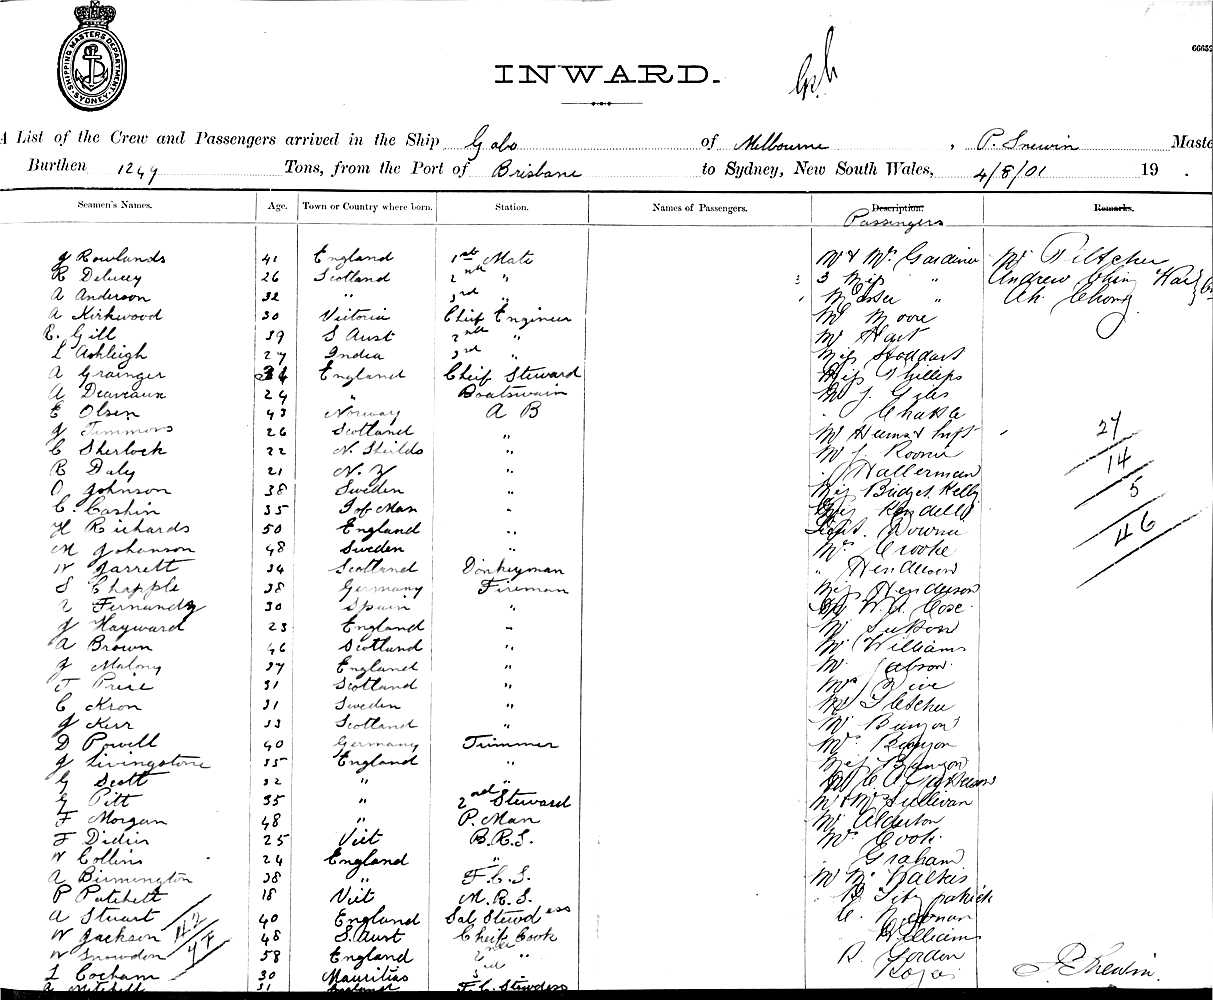 SHIPPING MASTERS DEPARTMENT
SYDNEY
INWARD.
A List of the Crew and Passengers arrived in the Ship Gabo of Melbourne, P. Snewin Maste
Burthen 1249 Tons, from the Port of Brisbane to Sydney, New South Wales, 4/8/01 19 .
Seamen's Names. Age. Town or Country where born. Station. Names of Passengers. Description. Remarks.
Passengers
J Rowlands 41 England 1st Mate Mr & Mrs Gardiner Mr Piltcher
R Delucey 26 Scotland 2nd " 3 Miss " Andrew Ching
A Anderson 32 " 3rd " Master " Ah Chong
A Kirkwood 30 Victoria Chief Engineer Mr Moore
E. Gill 39 S Aust 2nd " Mr Hart
L Ashleigh 27 India 3rd " Miss Stoddart
A Grainger England Cheif Steward Miss Phillips
A Deaveaux 24 " Boatswain Mr J. Giles
E Olsen 43 Norway A B
J Timmons 26 Scotland "
C Sherlock 22 N. Sheilds " Mr J 27
R Daly 21 N. Z " Hallerman 14
O Johnson 38 Sweden " Miss Bridget Kelly 5
C. Cashin 35 I of Man " Kendell
H Richards 50 England " 46
M Johanson 48 Sweden " Mrs Crooke
W Jarrett 34 Scotland Donkeyman " Henderson
S Chapple 38 Germany Fireman Miss Henderson
30 Spain " W. A. Cose
J Hayward 23 England "
A Brown 46 Scotland " Mr Williams
J Malony 37 England " Mr
T Price 31 Scotland "
C Kron 31 Sweden " Mr Fletcher
J Kerr 33 Scotland " Mr Bunyon
D Powell 40 Germany Trimmer Mrs Bunyon
J Livingstone 35 England " Miss Bunyon
G Scott 32 " "
G Pitt 35 " 2nd Steward Mr & Mrs Sullivan
F Morgan 48 " P. Man Mr Alderton
F Didier 25 Vict B.R.S. Mr Cook
W Collins 24 England " Graham
A Birmington 38 " F.C.S.
P Patchett 18 Vict M.R.S. Fitzpatrick
A Stuart 40 England Sal Stewdess
W Jackson 42 48 S. Aust Cheif Cook Williams
W Snowdon 44 58 England 2nd " R. Gordon
L Cocham 30 Mauritius 3rd " P Snewin
A Mitchell 31 England F.C. Stewdess